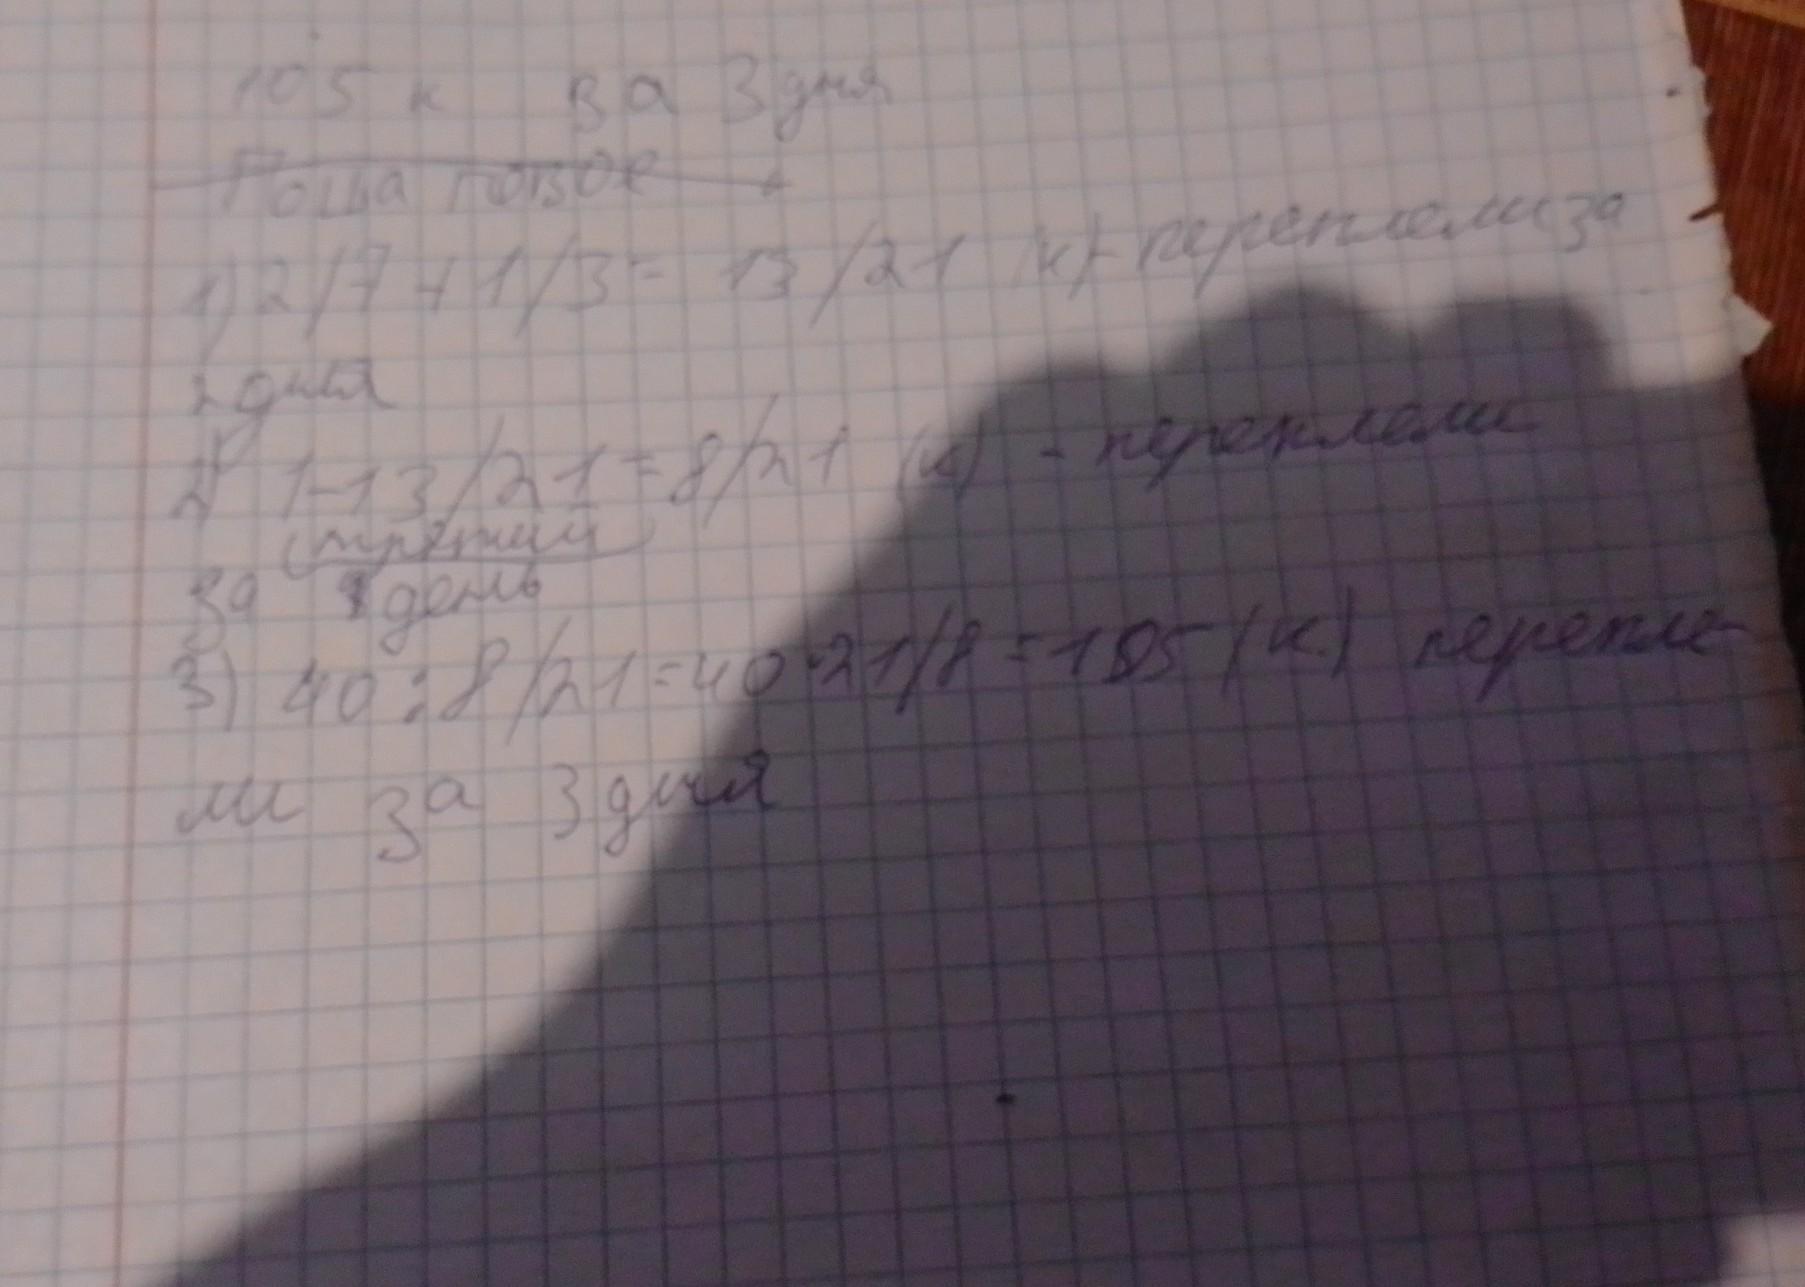 105 к за 3 дня
1) 2/7 + 1/3 = 13/21 (к) - переплели за
2 дня
2) 1-13/21 = 8/21 (к) - переплели
третий
за день
3) 40 : 8/21 = 40·21/8 = 105 (к.) перепле-
ли за 3 дня